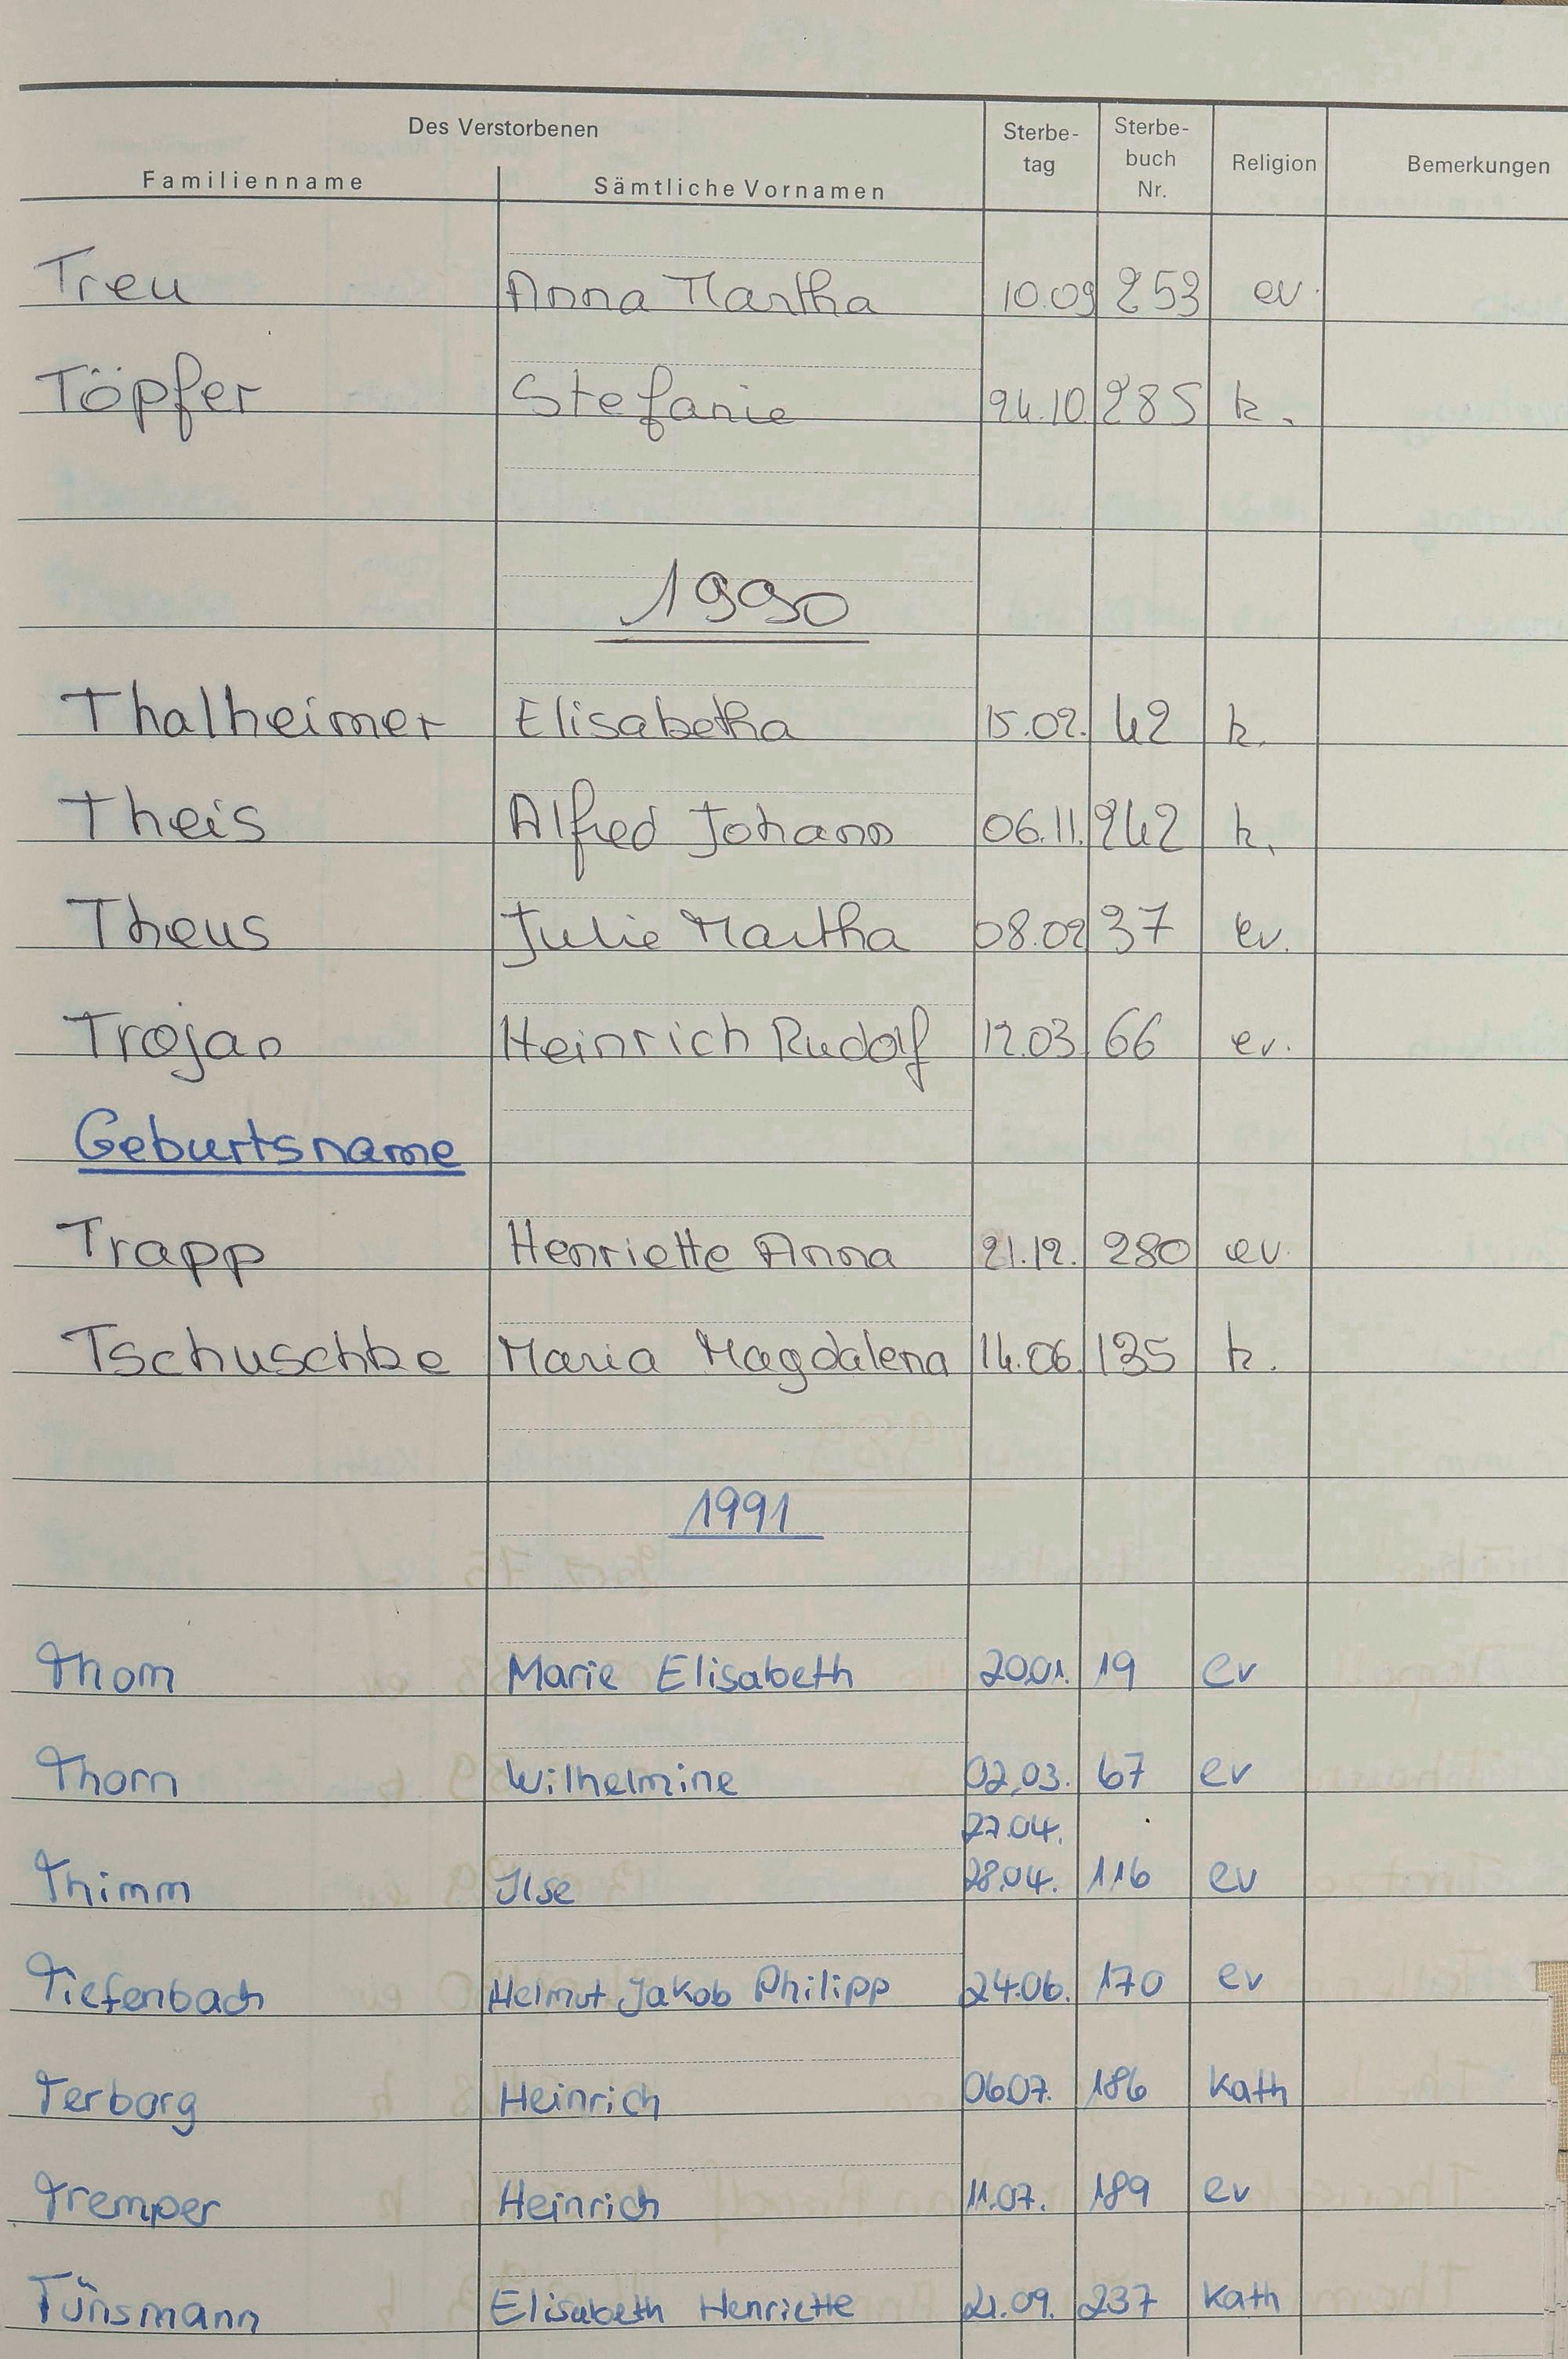 Des Verstorbenen
Familienname Sämtliche Vornamen Sterbe-tag Sterbe-buch Nr. Religion Bemerkungen
Treu Anna Martha 10.09 253 ev.
Töpfer Stefanie 24.10 285 k.
1990
Thalheimer Elisabetha 15.02. 42 k.
Theis Alfred Johann 06.11. 242 k.
Theus Julie Martha 08.02 37 ev.
Trojan Heinrich Rudolf 12.03. 66 ev.
Geburtsname
Trapp Henriette Anna 21.12. 280 ev.
Tschuschke Maria Magdalena 14.06. 135 k.
1991
Thom Marie Elisabeth 20.01. 19 ev
Thorn Wilhelmine 02.03. 67 ev
27.04.
Thimm Ilse 28.04. 116 ev
Tiefenbach Helmut Jakob Philipp 24.06. 170 ev
Terborg Heinrich 06.07. 186 Kath
Tremper Heinrich 11.07. 189 ev
Tünsmann Elisabeth Henriette 21.09. 237 Kath